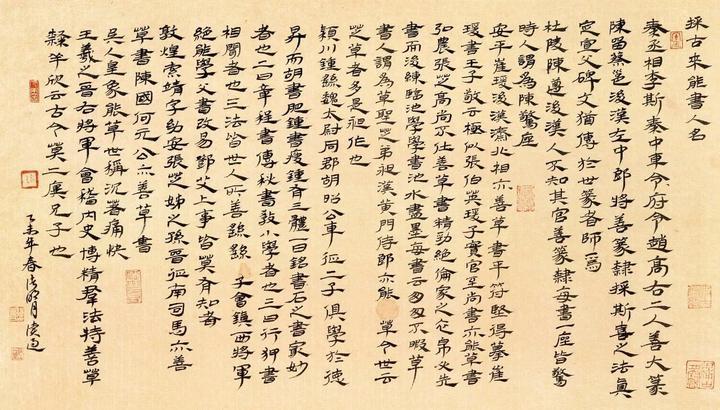 採古來能書人名
秦丞相李斯秦中車令府令趙高右二人善大篆
陳留蔡邕後漢左中郎將善篆隸採斯喜之法真
定宣父碑文猶傳於世篆者師焉
杜陵陳遵後漢人不知其官善篆隸每書一座皆驚
時人謂為陳驚座
安平崔瑗後漢濟北相亦善草書平苻堅得摹崔
瑗書王子敬云極似張伯英瑗子寔官至尚書亦能草書
弘農張芝高尚不仕善草書精勁絕倫家之衣帛必先
書而後練臨池學書池水盡墨每書云匆匆不暇草
書人謂為草聖芝弟昶漢黃門侍郎亦能草今世云
芝草者多是昶作也
潁川鍾繇魏太尉同郡胡昭公車徵二子俱學於德
昇而胡書肥鍾書瘦鍾有三體一曰銘書石之書㝡妙
者也二曰章程書傳秘書教小學者也三曰行狎書
相聞者也三法皆世人所善繇子會鎮西將軍
絕能學父書改易鄧艾上事皆莫有知者
敦煌索靖字幼安張芝姊之孫晉征南司馬亦善
草書陳國何元公亦善草書
吳人皇象能草世稱沉著痛快
王羲之晉右將軍會稽內史博精羣法特善草
隸羊欣云古今莫二廙兄子也
乙未年春清明月